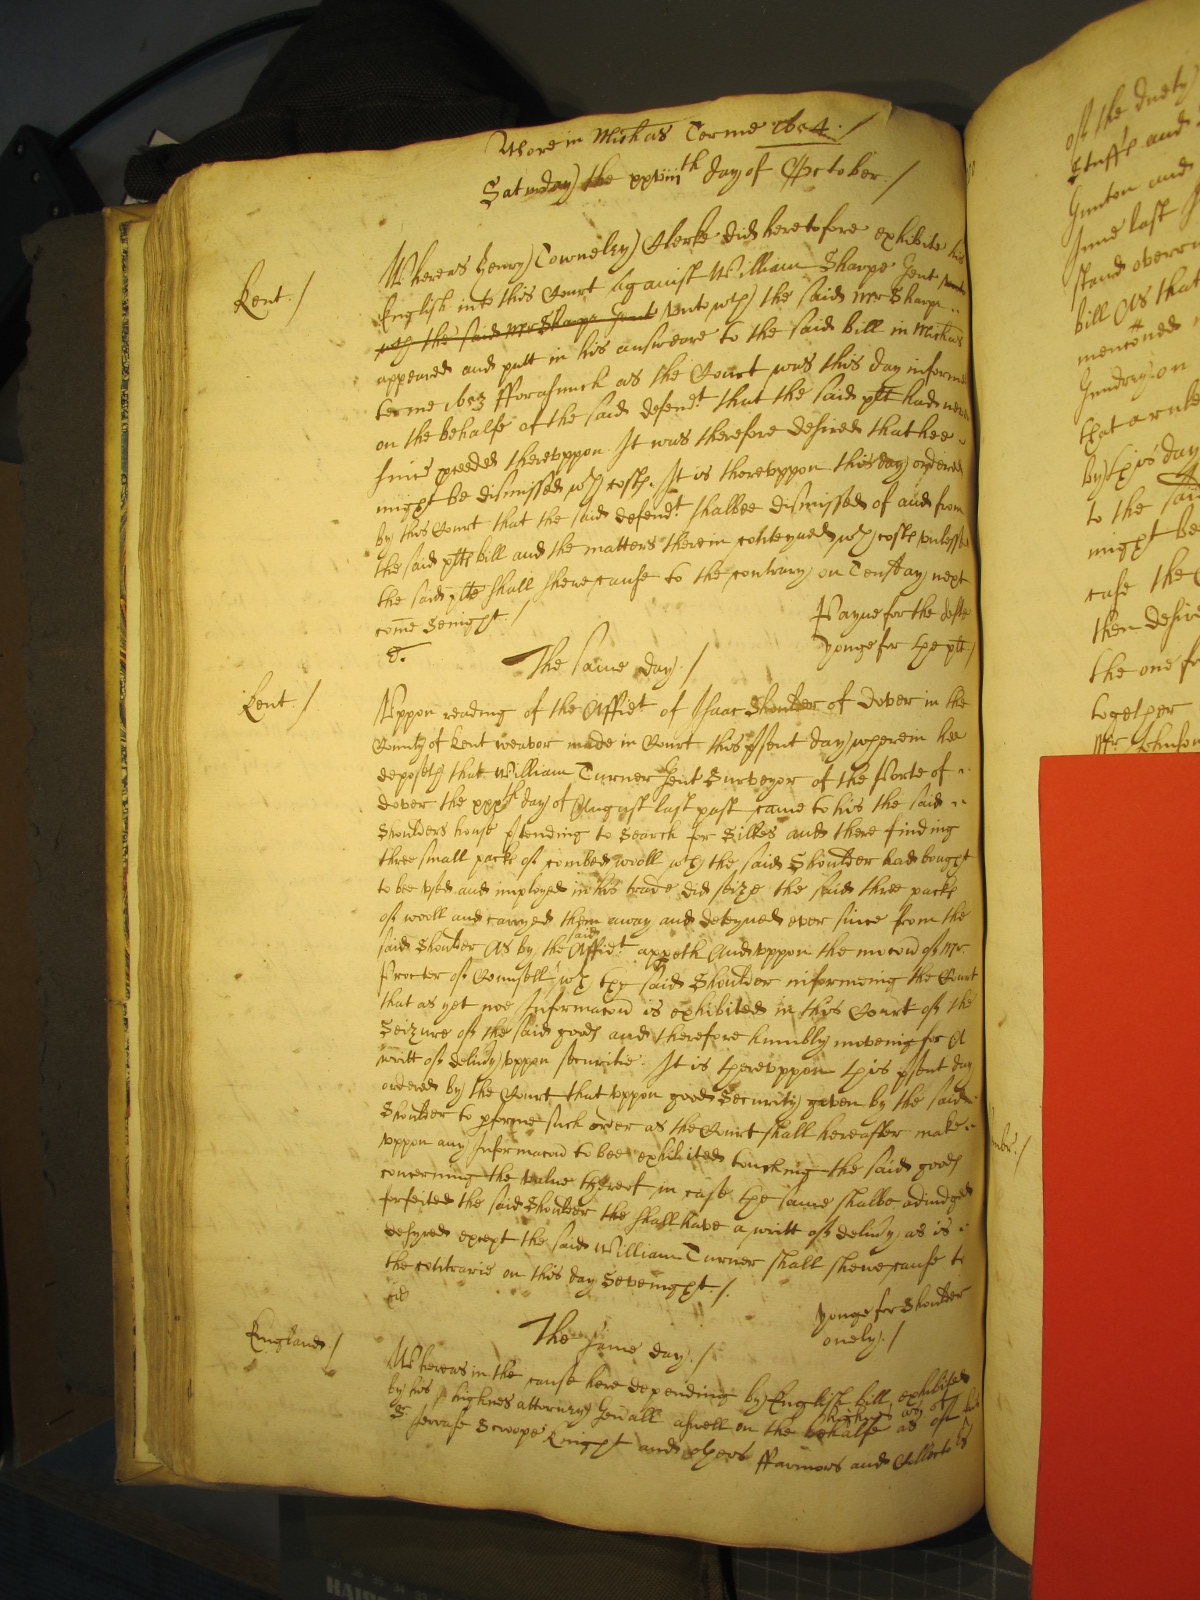 More in Mich'as Terme 1654 /
Saturday the xxviiith day of October /
Kent /
Whereas Henry Towneley Clerke did heretofore exhibite his
English into this Court against William Sharpe Gent
wch the said Mr Sharpe Gent unto wch the said Mr Sharpe
appeared and putt in his answeare to the said bill in Mich'as
terme 1653 fforasmuch as the Court was this day informed
on the behalfe of the said defendt that the said plt had never
since pceeded thereuppon It was therefore desired that hee
might be dismissed wth costs. It is thereuppon this day ordered
by this Court that the said defendt shalbee dismissed of and from
the said plts bill and the matters therein conteyned wth costs unlesse
the said plte shall shewe cause to the contrary on Tensday next
come Senight /
Payne for the defte
Yonge for the plt /
The same day /
Kent /
Uppon reading of the Affidt of Isaac Shoulder of Dover in the
County of Kent weavor made in Court this psent day wherein hee
deposeth that William Turner Gent Surveyor of the Porte of
Dover the xxxth day of August last past came to his the said
Shoulders house ptending to Search for Silkes and there finding
three small packs of combed wooll wch the said Shoulder had bought
to bee used and imployed in his trade did seize the said three packs
of wooll and carryed them away and deteyned ever since from the
said Shoulder As by the said Affidt appeth And uppon the mocon of Mr
Procter of Counsell wth the said Shoulder informing the Court
that as yet noe Informacon is exhibited in this Court of the
Seizure of the said goods and therefore humbly moveing for A
writt of delivy uppon securitie. It is thereuppon this psent day
ordered by the Court that uppon good Security given by the said
Shoulder to pforme such order as the Court shall hereafter make
uppon any Informacon to bee exhibited touching the said goods
concerning the value thereof in case the same shalbe adiudged
forfeited the said Shoulder the shall have a writt of delivy as is
desyred except the said William Turner shall shewe cause to
the contrarie on this day Sevenight. /
Yonge for Shoulder
onely. /
The same day. /
England /
Whereas in the cause here depending by English bill exhibited
by his highnes attorney Gen'all aswell on the behalfe of his highnes as of
Sr Jervase Scroope Knight and others ffarmors and
of the duety
Stuffe and
Gunton and
June last
stand overru
bill As that
mentioned
Gundry on
that a rule
by this day
to the said
might be
case the
then desir
the one
together
Mr Johnson